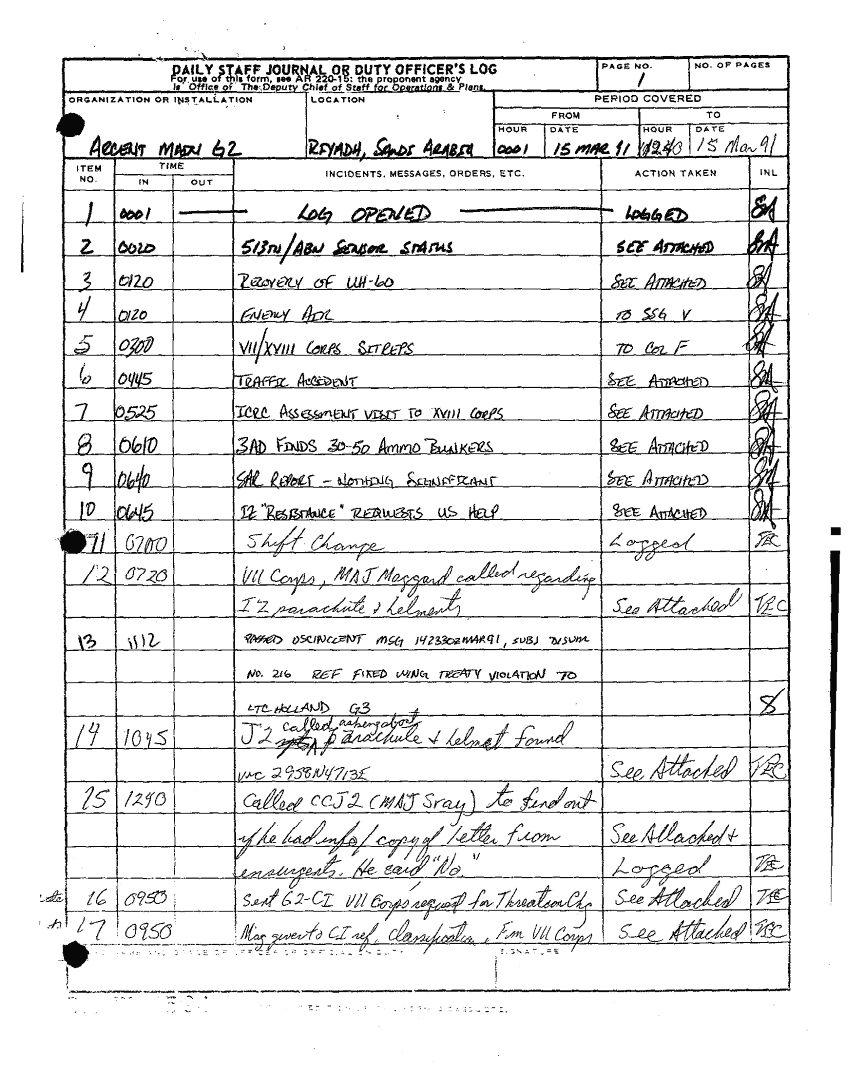 DAILY STAFF JOURNAL OR DUTY OFFICER'S LOG
For use of this form, see AR 220-15: the proponent agency
is Office of The Deputy Chief of Staff for Operations & Plans.
PAGE NO.
1
NO. OF PAGES
ORGANIZATION OR INSTALLATION
ARCENT MAIN G2
LOCATION
RIYADH, SAUDI ARABIA
PERIOD COVERED
FROM TO
HOUR DATE HOUR DATE
0001 15 MAR 91 1240 15 Mar 91
ITEM NO. TIME IN OUT INCIDENTS, MESSAGES, ORDERS, ETC. ACTION TAKEN INL
1 0001 LOG OPENED LOGGED
2 0020 513TH/ABN SENSOR STATUS SEE ATTACHED
3 0120 RECOVERY OF UH-60 SEE ATTACHED
4 0120 ENEMY ADL TO SSG V
5 0300 VII/XVIII CORPS SITREPS TO COL F
6 0445 TRAFFIC ACCIDENT SEE ATTACHED
7 0525 ICRC ASSESSMENT VISIT TO XVIII CORPS SEE ATTACHED
8 0610 3AD FINDS 30-50 AMMO BUNKERS SEE ATTACHED
9 0640 SAR REPORT - NOTHING SIGNIFICANT SEE ATTACHED
10 0645 IZ "RESISTANCE" REQUESTS US HELP SEE ATTACHED
11 0700 Shift Change Logged
12 0720 VII Corps, MAJ Maggard called regarding
IZ parachute & helments See Attached
13 1112 PASSED USCINCCENT MSG 142330Z MAR 91, SUBJ DISUM
NO. 216 REF FIXED WING TREATY VIOLATION TO
LTC HOLLAND G3
14 1045 J2 called asking about parachute & helmet found
vic 2958N4713E See Attached
15 1240 Called CCJ2 (MAJ Sray) to find out
if he had info/copy of letter from See Attached &
insurgents. He said "No." Logged
16 0950 Sent G2-CI VII Corps request for Threatcon Chg See Attached
17 0950 Msg given to CI ref. Classification, Fm VII Corps See Attached